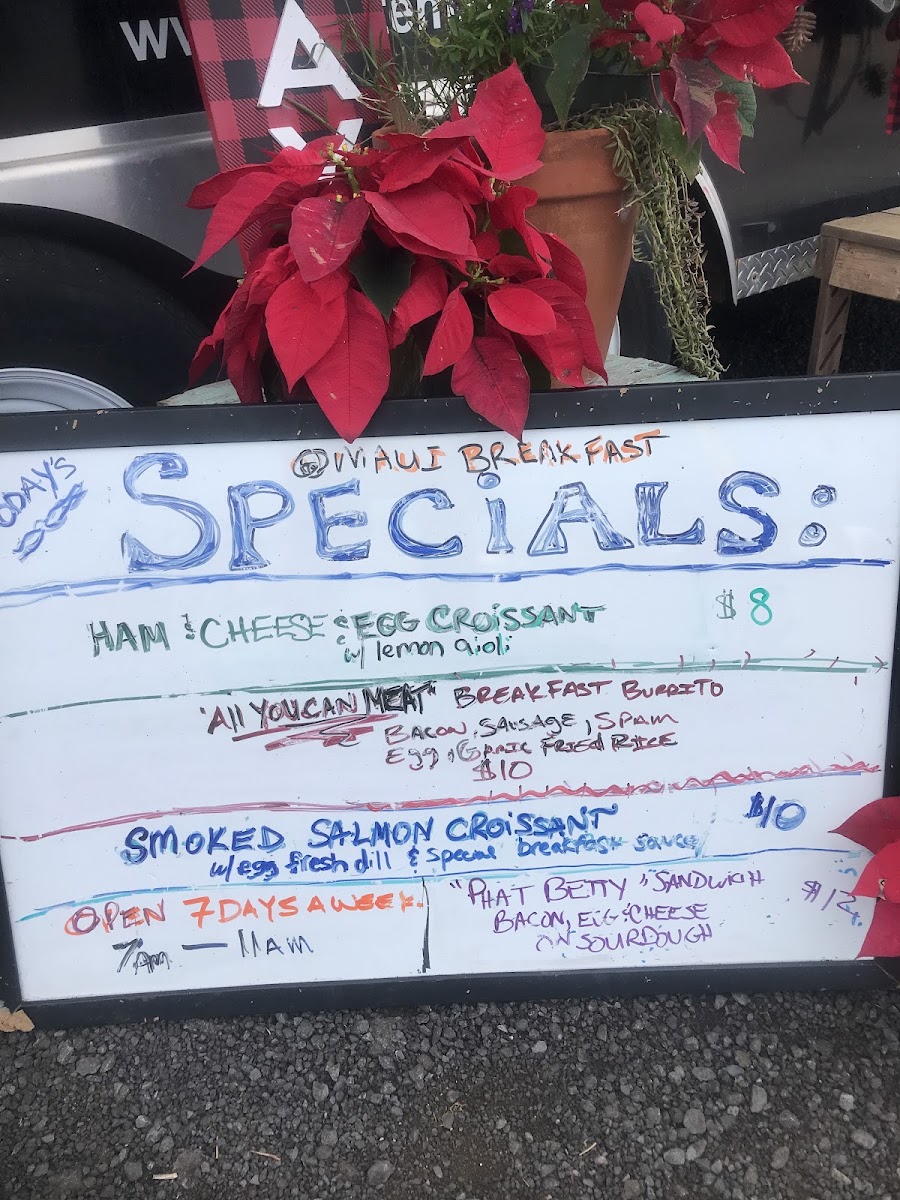 A
Y
@MAUI BREAKFAST
SPECiALS:
HAM & CHEESE & EGG CROiSSANT $8
w/ lemon aioli
"All YOU CAN MEAT" BREAKFAST BURRITO
BACON, SAUSAGE, SPAM
Egg, GARLIC FRIED RICE
$10
SMOKED SALMON CROiSSANT $10
w/ egg fresh dill & special breakfast sauce
OPEN 7 DAYS A WEEK.
7AM — 11AM
"PHAT BETTY" SANDWICH
BACON, EGG & CHEESE
ON SOURDOUGH